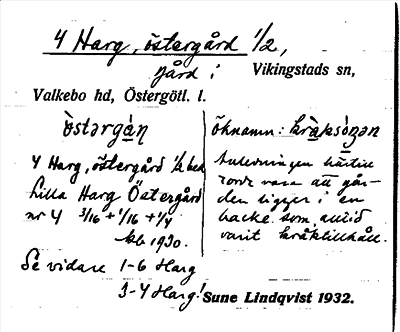 4 Harg, östergård 1/2,
gård i Vikingstads sn,
Valkebo hd, Östergötl. l.
ö̀stərgá̱n
öknamn: krà̱ksó̱gən
4 Harg, östergård 1/2 bek
Lilla Harg Östergård
nr 4 3/16 + 1/16 + 1/4
kb 1930.
Anledningen härtill
torde vara att går-
den ligger i en
backe som alltid
varit kråktillhåll.
Se vidare 1-6 Harg
3-4 Harg!
Sune Lindqvist 1932.